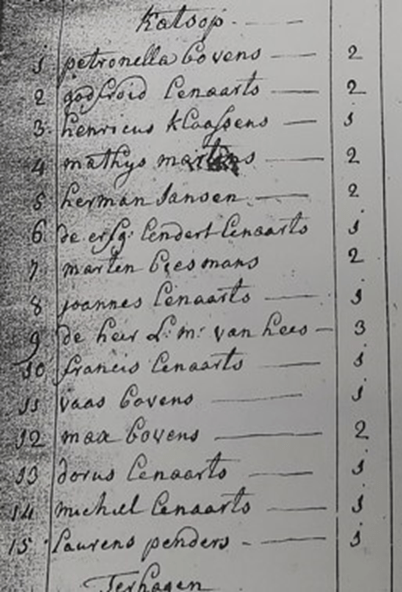 Katsop
1 petronella Covens — 2
2 godfroid Lenaarts — 2
3. henricus Klaassens — 1
4 mathys martens — 2
5 herman Jansen — 2
6 de erfg: Lendert Lenaarts 1
7. marten Geesmans 2
8 joannes Lenaarts — 1
9 de heer L: m: van hees — 3
10 francis Lenaarts — 1
11 vaas Covens — 1
12 max Covens — 2
13 dorus Lenaarts — 1
14 michiel Lenaarts — 1
15 Laurens penders — 1
Terhagen